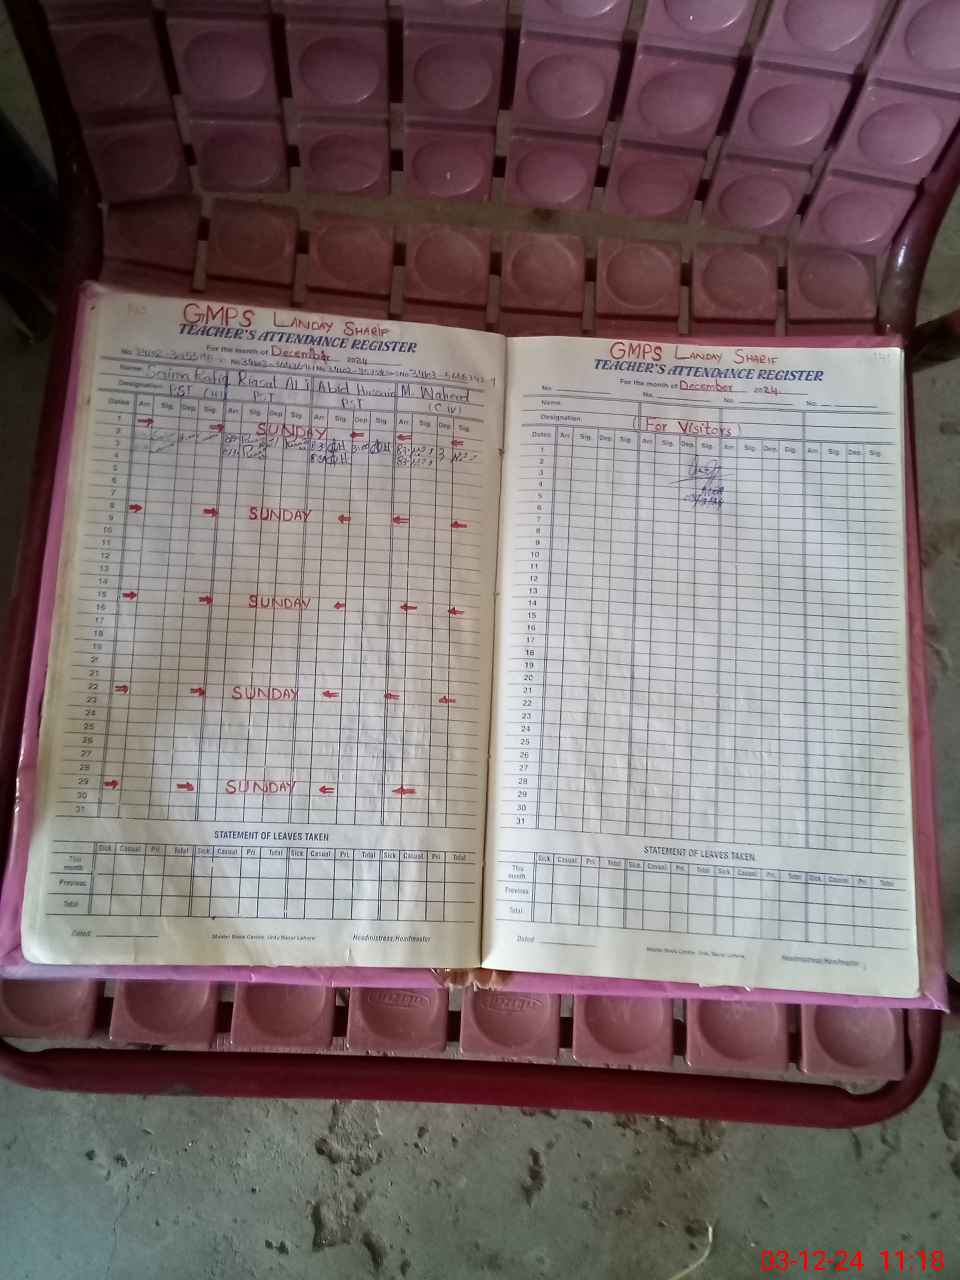 GMPS LANDAY SHARIF
TEACHER'S ATTENDANCE REGISTER
For the month of December 2024
No. No. No. No.
Name Saima Rafiq Riasat Ali Abid Hussain M. Waheed
Designation PST (H) PST PST (C IV)
Dates Arr. Sig. Dep. Sig. Arr. Sig. Dep. Sig. Arr. Sig. Dep. Sig. Arr. Sig. Dep. Sig.
1 SUNDAY
2
3
4
5
6
7
8 SUNDAY
9
10
11
12
13
14
15 SUNDAY
16
17
18
19
20
21
22 SUNDAY
23
24
25
26
27
28
29 SUNDAY
30
31
STATEMENT OF LEAVES TAKEN
Sick. Casual Pri. Total Sick. Casual Pri. Total Sick. Casual Pri. Total Sick. Casual Pri. Total
This month
Previous.
Total
Dated: Master Book Centre, Urdu Bazar Lahore. Headmistress/Headmaster
GMPS LANDAY SHARIF
TEACHER'S ATTENDANCE REGISTER
For the month of December 2024.
No. No. No. No.
Name:
Designation (For Visitors)
Dates Arr. Sig. Dep. Sig. Arr. Sig. Dep. Sig. Arr. Sig. Dep. Sig. Arr. Sig. Dep. Sig.
1
2
3
4
5
6
7
8
9
10
11
12
13
14
15
16
17
18
19
20
21
22
23
24
25
26
27
28
29
30
31
STATEMENT OF LEAVES TAKEN.
Sick. Casual Pri. Total Sick. Casual Pri. Total Sick. Casual Pri. Total Sick. Casual Pri. Total
This month.
Previous
Total
Dated: Master Book Centre, Urdu Bazar Lahore. Headmistress/Headmaster
03-12-24 11:18